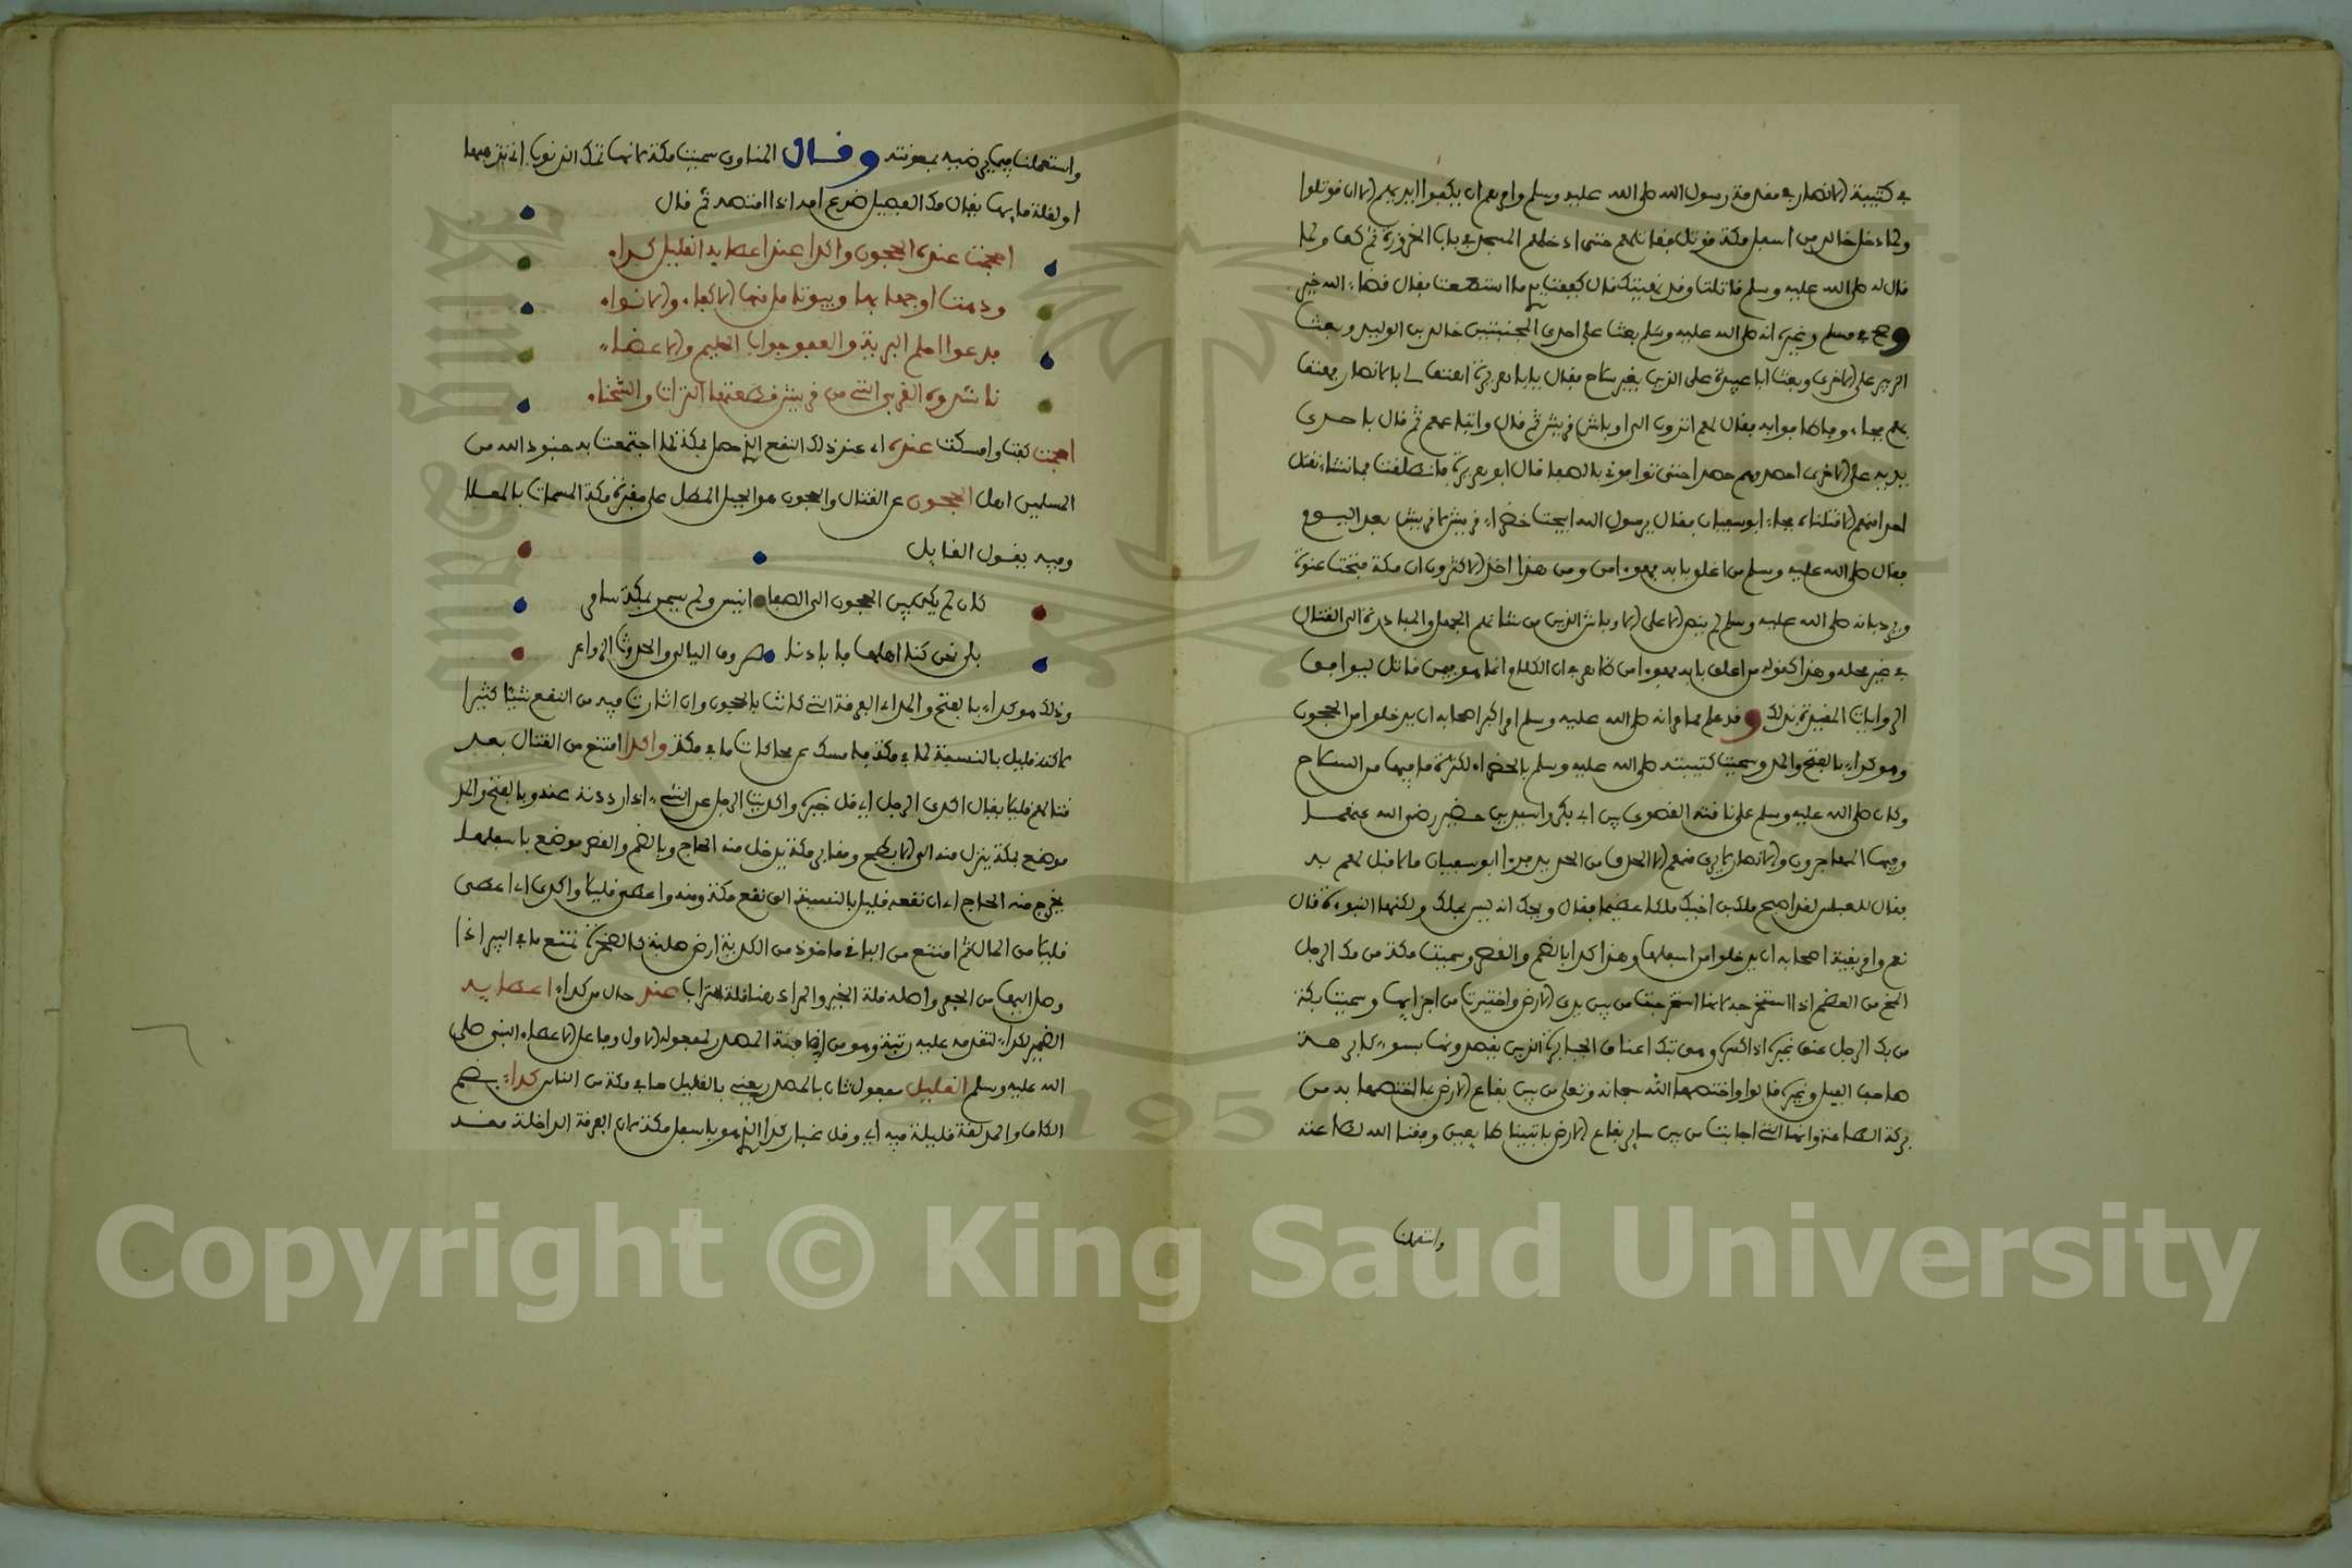 في كتيبة الانصار في مقدمة رسول الله صلى الله عليه وسلم وامرهم ان يكفوا ايديهم الا ان قوتلوا
ولما دخل خالد من اسفل مكة قوتل فقاتلهم حتى ادخلهم المسجد في باب الحزورة ثم كف ولما
قال له صلى الله عليه وسلم قاتلت وقد نهيتك قال كففت يدي ما استطعت فقال قضاء الله خير
وصح في مسلم وغيره انه صلى الله عليه وسلم بعث على احدى المجنبتين خالد بن الوليد وبعث
الزبير على الاخرى وبعث ابا عبيدة على الذين بغير سلاح فقال يا ابا هريرة اهتف لي بالانصار فهتف
بهم فجاءوا وطافوا به فقال لهم اترون الى اوباش قريش ثم قال واتباعهم ثم قال باحدى
يديه على الاخرى احصدوهم حصدا حتى توافوني بالصفا قال ابو هريرة فانطلقنا فما نشاء نقتل
احدا منهم الا قتلناه فجاء ابو سفيان فقال يرسول الله ابيحت خضراء قريش لا قريش بعد اليوم
فقال صلى الله عليه وسلم من اغلق بابه فهو امن ومن هذا اخذ الاكثرون ان مكة فتحت عنوة
ويرد بانه صلى الله عليه وسلم لم ينص الا على الاوباش الذين من شانهم الجهل والمبادرة الى القتال
في غير محله وهذا كقوله من اغلق بابه فهو امن ظاهر في ان الكلام انما هو فيمن قاتل ليوافق
الروايات المقيدة بذلك وقد علم مما مر انه صلى الله عليه وسلم امر اكبر اصحابه ان يدخلوا من الحجون
وهو كداء بالفتح والمد وسميت كتيبته صلى الله عليه وسلم بالخضراء لكثرة ما فيها من السلاح
وكان صلى الله عليه وسلم على ناقته القصوى بين ابي بكر واسيد بن حضير رضي الله عنهما
وفيها المهاجرون والانصار لا يرى منهم الا الحدق من الحديد فراى ابو سفيان ما لا قبل لهم به
فقال للعباس لقد اصبح ملك بن اخيك ملكا عظيما فقال ويحك انه ليس بملك ولكنها النبوءة قال
نعم وامر بقية اصحابه ان يدخلوا من اسفلها وهذا كدا بالضم والقصر وسميت مكة من مك الرجل
المخ من العظم اذا استخرجه لانها استخرجت من بين بدى الارض واختيرت من اجزايها وسميت بكة
من بك الرجل عنق غيره اذا كسره وهي تبك اعناق الجبابرة الذين يقصدونها بسوء كابرهة
صاحب الفيل وغيره قالوا واختصها الله سبحانه وتعلى من بين بقاع الارض بما اختصها به من
بركة الطاعة وانها التي اجابت من بين ساير بقاع الارض باتينا طايعين وفقنا الله لطاعته
واستعملنا
واستعملنا فيما يرضيه بمعونته وقال المناوي سميت مكة لانها تمك الذنوب اي تذهبها
او لقلة مايها يقال مك الفصيل ضرع امه اذا امتصه ثم قال
احجمت عنده الحجون واكدا عند اعطايه القليل كداء
ودهت اوجها بها وبيوتا مل منها الاكفاء والاقواء
فدعوا احلم البرية والعفو جواب الحليم والاغضاء
ناشدوه القربى التي من قريش قطعتها الترات والشحناء
احجمت كفت وامسكت عنده اي عند ذلك النقع الذي حصل بمكة لما اجتمعت به جنود الله من
المسلمين اهل الحجون عن القتال والحجون هو الجبل المطل على مقبرة مكة المسماة بالمعلا
وفيه يقول القايل
كان لم يكن بين الحجون الى الصفا انيس ولم يسمر بمكة سامر
بلى نحن كنا اهلها فابادنا صروف اليالي والحدوث الزواعر
وذلك هو كداء بالفتح والمد اي الفرقة التي كانت بالحجون وان اثارت فيه من النقع شيئا كثيرا
لاكنه قليل بالنسبة لما في مكة فامسك عن محاكات ما في مكة واكدا امتنع من القتال بعد
قتالهم قليلا يقال اكدى الرجل اي قل خيره واكديت الرجل عن الشيء اذا رددته عنه وبالفتح والمد
موضع بمكة ينزل منه الى الابطح ومقابر مكة يدخل منه الحاج وبالضم والقصر موضع باسفلها
يخرج منه الحاج اي ان نقعه قليل بالنسبة الى نقع مكة ومنه واعطى قليلا واكدى اي اعطى
قليلا من المال ثم امتنع من الباقي ماخوذ من الكدية ارض صلبة كالصخرة تمنع ماء البير اذا
وصل اليها من الحفر واصله قلة الخير والمراد هنا قلة التراب عند حال من كداء اعطايه
الضمير لكداء لتقدمه عليه رتبة وهو من اضافة المصدر لمفعوله الاول وفاعل الاعطاء النبي صلى
الله عليه وسلم القليل مفعول ثان بالمصدر يعني بالقليل ما في مكة من الناس كداء بضم
الكاف والمد لغة قليلة فيه اي وقل غبار كدا الذي هو باسفل مكة لان الفرقة الداخلة منه